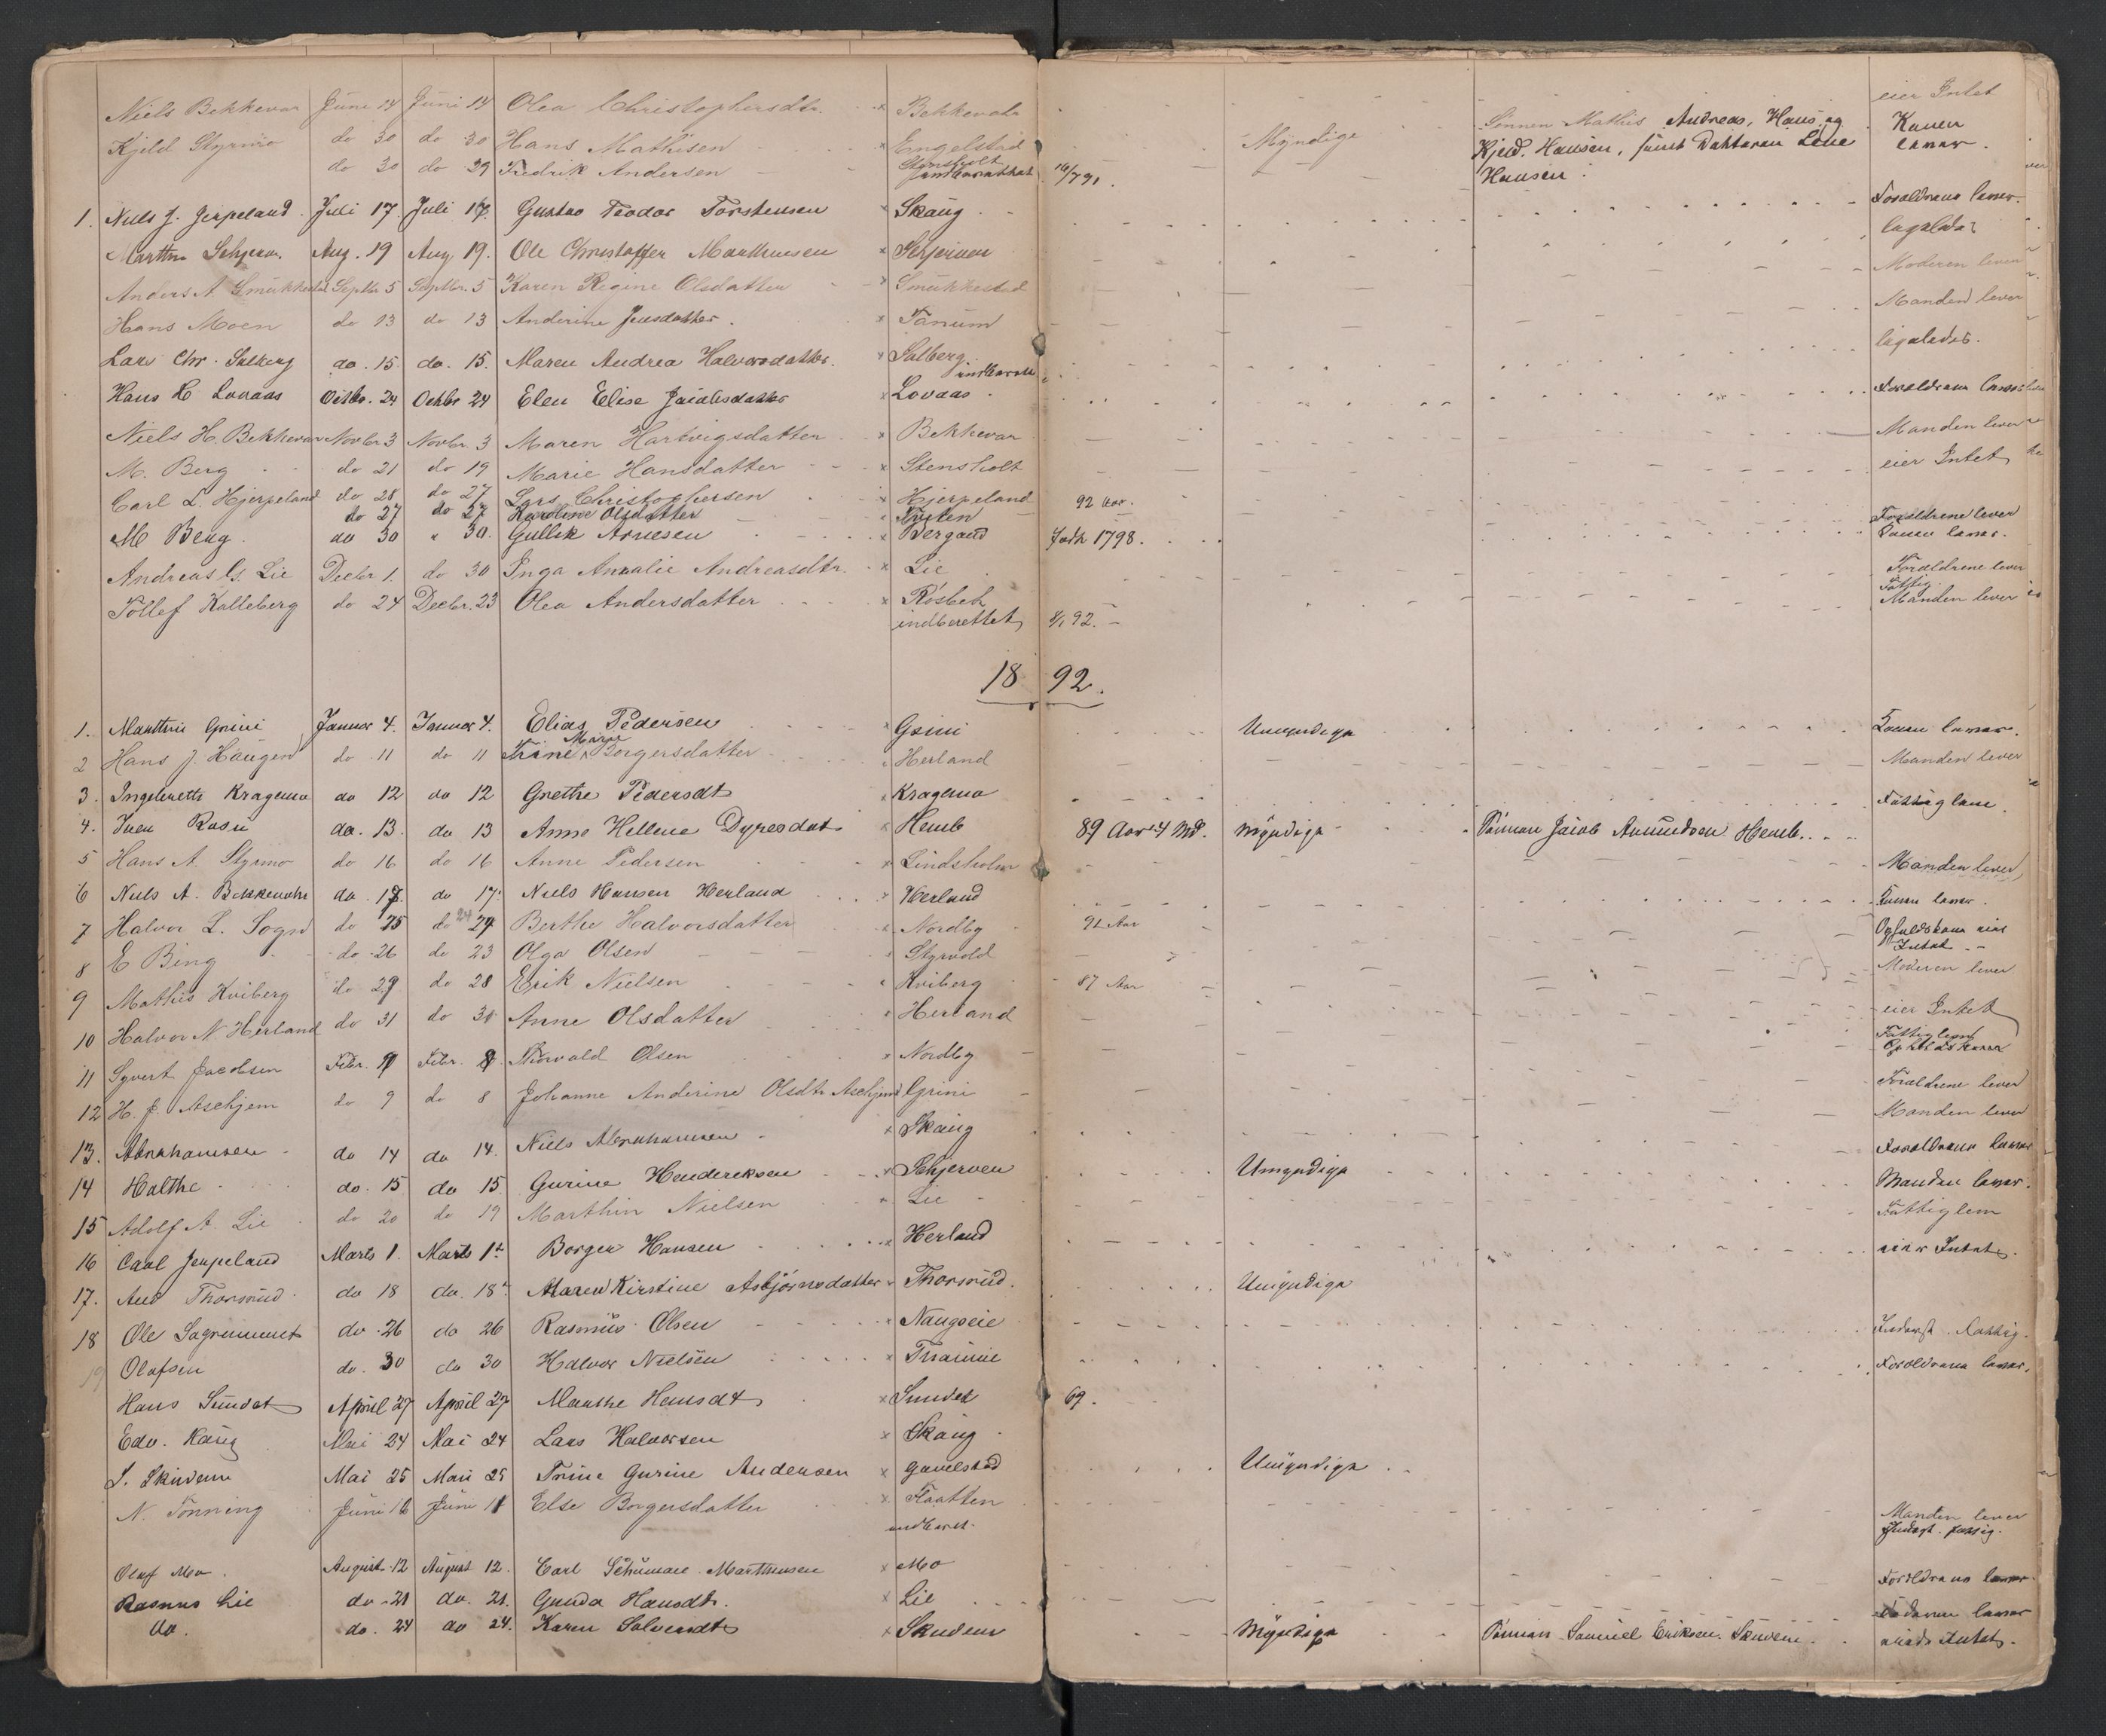 Niels Bekkevar Juni 14 Juni 14 Olea Christophersdtr. × Bekkevahr eier Intet
Kjeld Styrmo do 30 do 30 Hans Mathisen × Engelstad Myndige Sønnen Mathis Andreas, Hans og Konen
Kjeld Hansen, samt Dattaren Lene lever.
do 30 do 29 Fredrik Andersen Stensholt Hansen.
indberettet 16/7 91.
1. Niels J. Jerpeland Juli 17 Juli 17. Gustav Teodor Torstensen × Skaug Foraldrene lever.
Marthin Schjerven Aug. 19 Aug. 19. Ole Christoffer Marthinsen × Schjerven ligeledes
Anders A Smukkestad Septbr 5 Septbr. 5 Karen Regine Olsdatter × Smukkestad Moderen lever
Hans Moen do 13 do 13 Anderine Jensdatter. × Fanum Manden lever
Lars Chr. Salberg do. 15 do. 15. Maren Andrea Halvorsdatter. × Salberg ligeledes.
indberett
Hans L Lovaas Octbr. 24 Octbr 24 Elen Elise Jacobsdatter × Lovaas Foraldrene lever
Niels H. Bekkevar Novbr 3 Novbr. 3 Maren Hartvigsdatter × Bekkevar Manden lever
M. Berg do 21 do 19 Marie Hansdatter × Stensholt eier Intet
Carl L. Hjerpeland do 28 do 27 Lars Christophersen × Hjerpeland 92 Aar.
do 27 do 27 Karoline Olsdatter Tveten Foraldrene lever
M Berg. do 30 " 30. Gullik Arnesen × Bergand født 1798. Konen lever.
Andreas G. Lie Decbr 1. do 30 Inga Amalie Andreasdtr. × Lie Foraldrene lever
Fattig
Tollef Kalleberg do 24 Decbr. 23 Olea Andersdatter × Røsbek Manden lever
indberettet 8/1 92.
18 92.
1. Marthin Grini Januar 4. Januar 4. Elias Pedersen × Grini Umyndige Konen lever.
Marie
2 Hans J. Haugen do 11 do 11 Trine Borgersdatter Herland Manden lever
3. Ingebrett Kragemo do 12 do 12 Grethe Pedersdt × Kragemo Fattiglem.
4. Iver Rosn do. 13. do 13 Anne Hellene Dyresdat. × Hemb 89 Aar 4 Md. Myndige Sönnen Jacob Amundsen Hemb.
5 Hans A. Styrmo do 16 do 16 Anne Pedersen × Lindsholm Manden lever
6 Niels A. Bekkevahr do. 17. do 17. Niels Hansen Herland × Herland Konen lever.
7 Halvor L. Sogn do 25 do 24 24 Berthe Halvorsdatter × Nordby 91 Aar Opholdskone eier
Intet
8 E Bing do 26 do 23 Olga Olsen × Styrvold Moderen lever
9 Mathis Kviberg do 29 do 28 Erik Nielsen Kviberg 87 Aar eier Intet
10 Halvor N. Herland do 31 do 30 Anne Olsdatter Herland Fattiglem
Opholdskone
11 Syvert Jacobsen Febr. 9 Febr. 8 Thorvald Olsen × Nordby Foraldrene lever
12 H. J. Aschjem do 9 do 8 Johanne Anderine Olsdtr Aschjem Grini Manden lever
13. Abrahamsen do 14 do 14. Niels Abrahamsen × Skaug Foraldrene lever
14 Holthe do. 15 do 15. Gurine Hendereksen × Schjerven Umyndige Manden lever.
15 Adolf A. Lie do 20 do 19 Marthin Nielsen Lie Fattiglem
16 Carl Jerpeland Marts 1. Marts 1. Borger Hansen × Herland eier Intet.
17. And Thorsrud. do 18 do. 18. Maren Kirstine Asbjörnsdatter Thorsrud. Umyndige
18 Ole Sagrunnet do 26 do 26 Rasmus Olsen × Naugseie Inderst. fattig.
19 Olafsen do. 30 do 30 Halvor Nielsen × Foraldrene lever.
Hans Sundet April 27 April 27 Marthe Hansdt × Sundet 69.
Edv. Kaug Mai 24 Mai 24 Lars Halvorsen × Skaug
S. Skudem Mai 25 Mai 25 Trine Gurine Andersen × Gavelstad Umyndige
N. Tonning Juni 16 Juni 11 Else Borgersdatter × Flaatten Manden lever
indberet. Inderst. fattig.
Olaf Mo. August 12 August 12. Carl Schumare Marthinsen × Mo Foraldrene lever.
Rasmus Lie do. 21 do. 21. Gunda Hansdtr. × Lie Faderen lever
do. do. 24 do 24. Karen Salvesdt × Skudem Myndige Sönnen Samuel Eriksen Skudem. eiede Intet.